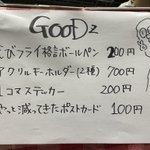 GOODZ
びフライ格言ボールペン 200円
アクリルキーホルダー(2種) 700円
1コマステッカー 200円
やっと減ってきたポストカード 100円